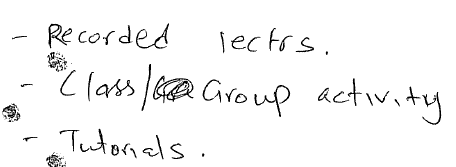 - Recorded lectrs.
- Class/Group activity
- Tutorials.